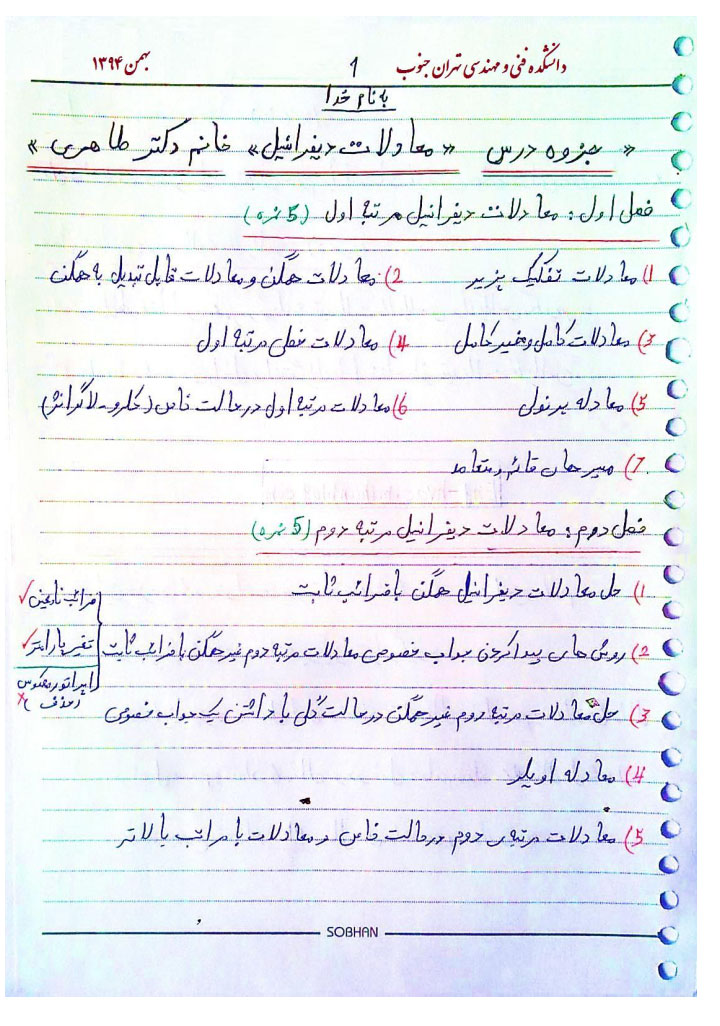 دانشکده فنی و مهندسی تهران جنوب 1 بهمن ۱۳۹۴
به نام خدا
« جزوه درس « معادلات دیفرانیل» خانم دکتر طاهری »
فصل اول : معادلات دیفرانیل مرتبه اول (5 نمره)
1) معادلات تفکیک پزیر 2) معادلات همگن و معادلات قابل تبدیل به همگن
3) معادلات کامل و غیر کامل 4) معادلات خطی مرتبه اول
5) معادله برنولی 6) معادلات مرتبه اول در حالت خاص (کلرو - لاگرانژ)
7) مسیر های قائم و متعامد
فصل دوم : معادلات دیفرانیل مرتبه دوم (5 نمره)
1) حل معادلات دیفرانیل همگن با ضرائب ثابت
2) روش های پیدا کردن جواب خصوصی معادلات مرتبه دوم غیر همگن با ضرائب ثابت
ضرائب نامعین ✓
تغیر پارامتر ✓
اپراتور معکوس
(حذف) ×
3) حل معادلات مرتبه دوم غیر همگن در حالت کلی با داشتن یک جواب خصوصی
4) معادله اویلر
5) معادلات مرتبه ی دوم در حالت خاص و معادلات با مراتب بالاتر
SOBHAN